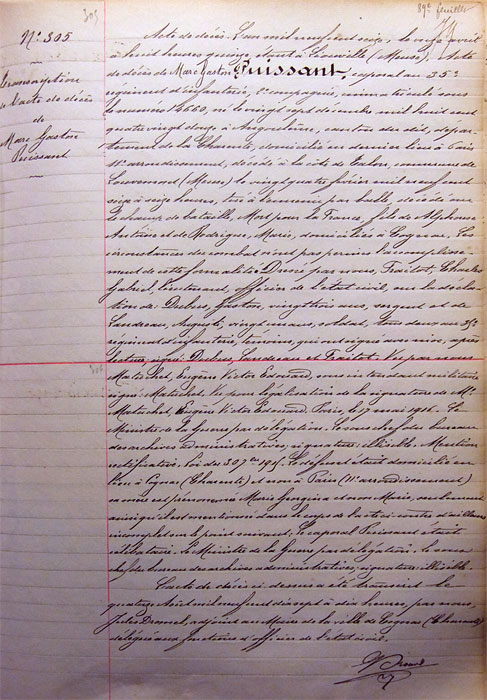 305
89e feuillet
N° 305
Acte de décès. L'an mil neuf cent seize, le onze avril
à huit heures quinze, étant à Lironville (Meuse). Acte
Transcription
de décès de Marc Gaston Puissant, caporal au 35e
de l'acte de décès
régiment d'infanterie, 2e compagnie, immatriculé sous
de
le numéro 14660, né le vingt sept décembre mil huit cent
Marc Gaston
quatre vingt douze à Angoulême, canton du dit, dépar-
Puissant
tement de la Charente, domicilié en dernier lieu à Paris
arrondissement, décédé à la côte de commune de
Louvemont (Meuse) le vingt quatre février mil neuf cent
seize à seize heures, tué à l'ennemi par balle, décédé sur
le champ de bataille, Mort pour la France, fils de Alphonse
Antoine et de Rodrigue, Marie, domiciliés à Cognac. Les
circonstances du combat n'ont pas permis l'accomplisse-
ment de cette formalité. Dressé par nous, Fraitot, Charles
Gabriel, lieutenant, officier de l'état civil, sur la déclara
tion de Dubus, Gaston, vingt trois ans, sergent et de
Landreau, Auguste, vingt un ans, soldat, tous deux au 35e
régiment d'infanterie, témoins, qui ont signé avec nous, après
lecture, signé: Dubus, Landreau et Fraitot. Vu par nous
Matuchet, Eugène Victor Edouard, sous-intendant militaire
signé: Matuchet. Vu pour légalisation de la signature de Mr
Matuchet, Eugène Victor Edouard, Paris, le 17 mai 1916. Le
Ministre de la Guerre par délégation. Le sous chef du bureau
des archives administratives, signature: illisible. Mention
rectificative, loi du 30 7bre 1915. Le défunt était domicilié en
lieu à Cognac (Charente) et non à Paris (arrondissement)
sa mère est prénommée Marie Georgina et non Marie,
ainsi qu'il est mentionné dans le corps de l'acte ci-contre d'ailleurs
incomplet sur le point suivant: le caporal Puissant était
célibataire. Le Ministre de la Guerre par délégation, le sous
chef du bureau des archives administratives; signature: illisible.
L'acte de décès ci dessus a été transcrit le
quatorze Avril mil neuf cent dix sept à dix heures, par nous,
Jules Dromel, adjoint au Maire de la ville de Cognac (Charente)
délégué aux fonctions d'officier de l'état civil.